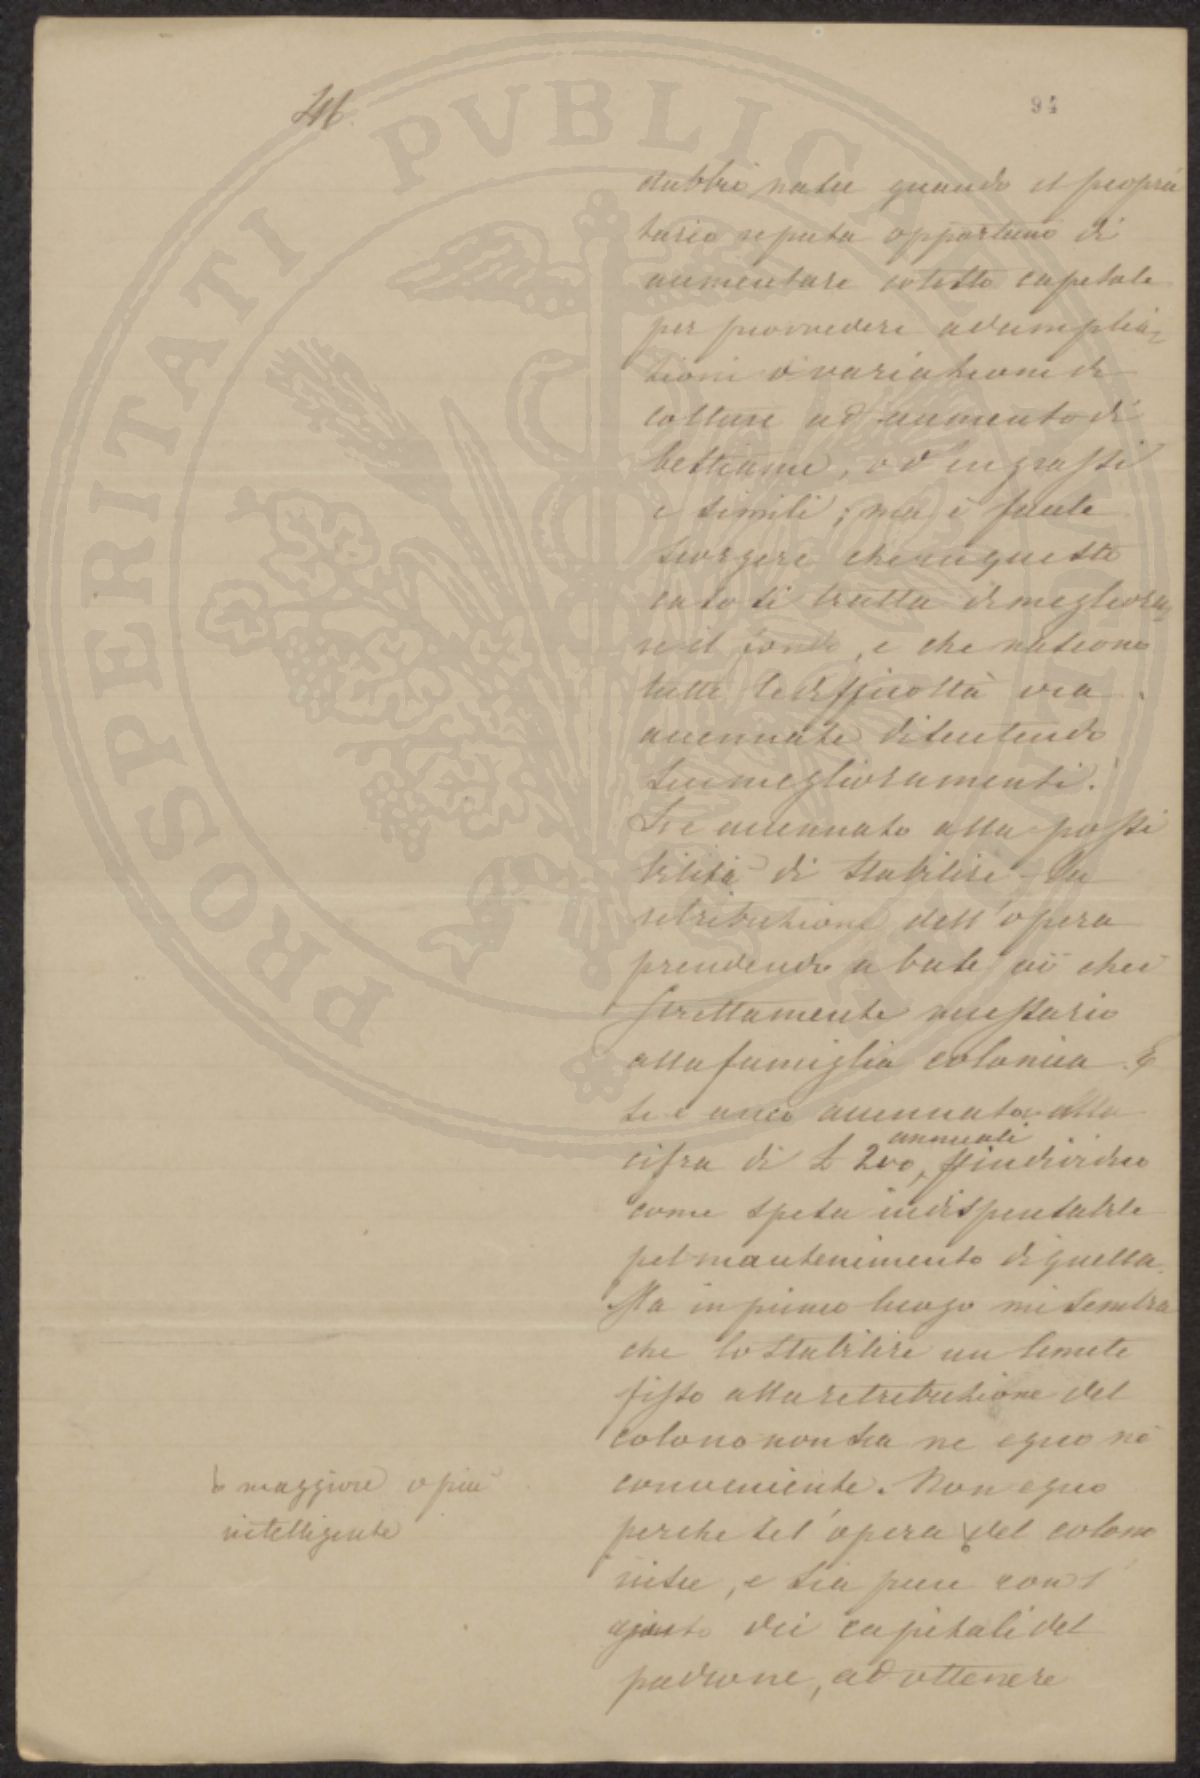 46.
94
dubbio nasce quando il proprie
tario reputa opportuno di
aumentare cotesto capitale
per provvedere ad amplia-
zioni o variazioni di
colture ad aumento di
bestiame, od ingrassi
e simili; ma è facile
scorgere che in questo
caso si tratta di migliora-
re il fondo, e che nascono
tutte le difficoltà ora
accennate discutendo
sui miglioramenti.
Si è accennato alla possi
bilità di stabilire la
retribuzione dell'opera
prendendo a base ciò che è
strettamente necessario
alla famiglia colonica. E
si è anco accennato alla
cifra di £ 200, annuali individuo
come spesa indispensabile
pel mantenimento di quella.
Ma in primo luogo mi sembra
che lo stabilire un limite
fisso alla retribuzione del
colono non sia ne equo nè
conveniente. Non equo
perche se l'opera del colono
maggiore o più
intelligente
riesce, e sia pure con l'
ajuto dei capitali del
padrone, ad ottenere
PROSPERITATI PVBLICAE